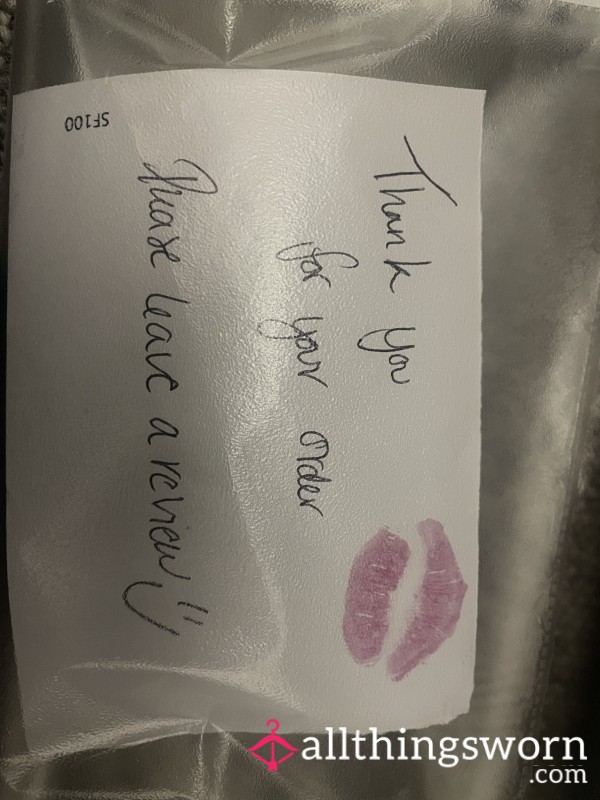 Thank you
for your order
Please leave a review! :)
SF100
allthingsworn
.com